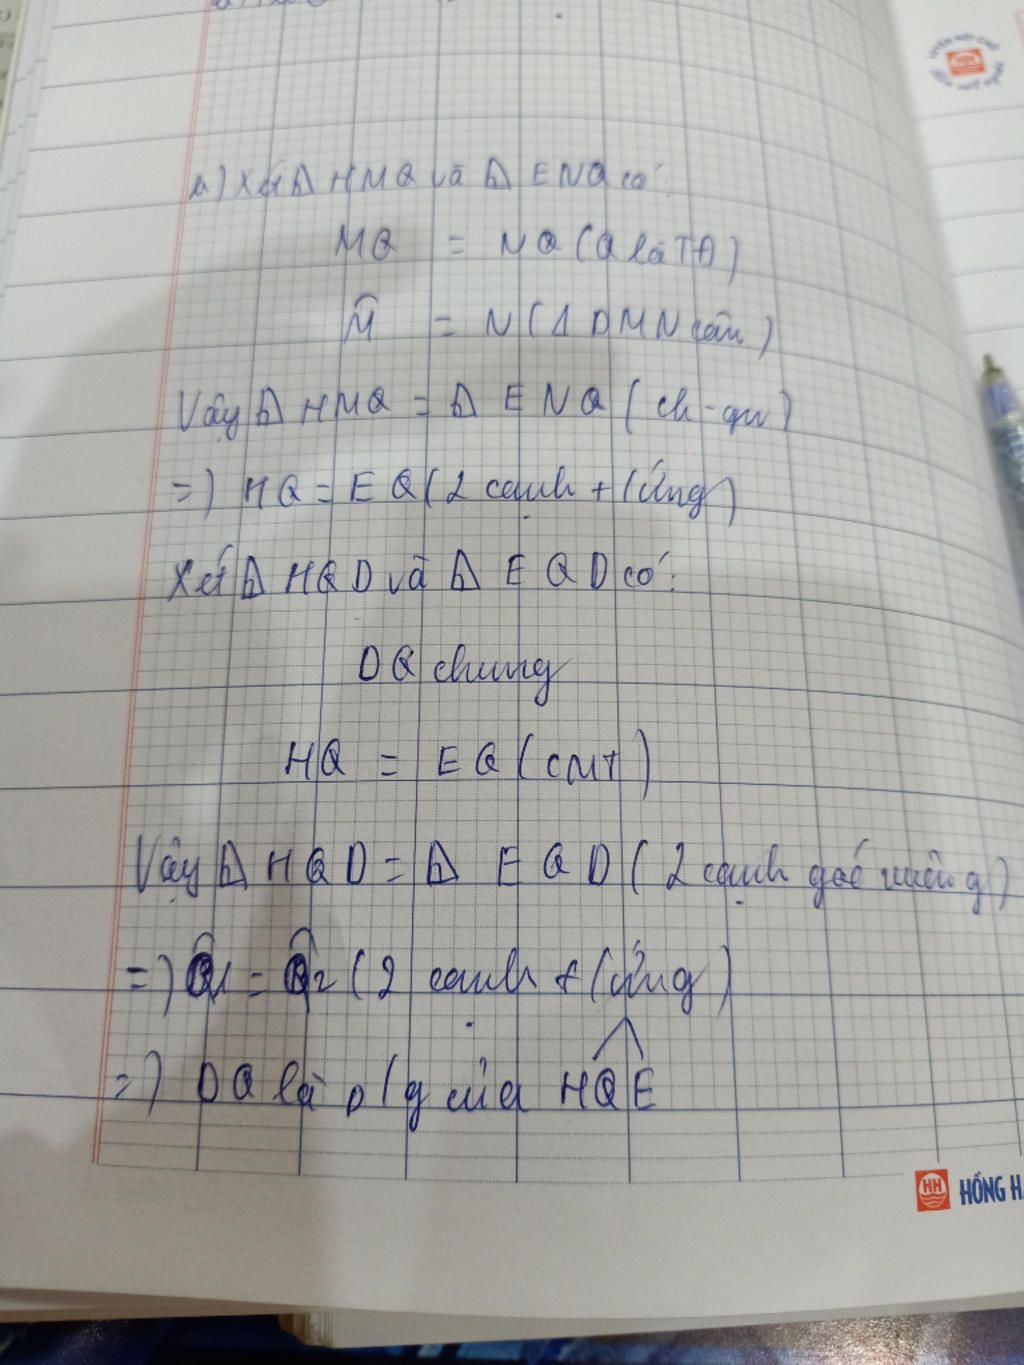 a) Xét Δ HMQ và Δ ENQ có:
MQ = NQ (Q là TĐ)
M̂ = N (Δ DMN cân)
Vậy Δ HMQ = Δ ENQ (ch-gn)
=) HQ = EQ (2 cạnh t/ứng)
Xét Δ HQD và Δ EQD có:
DQ chung
HQ = EQ (CMT)
Vậy Δ HQD = Δ EQD (2 cạnh góc vuông)
=) Q̂1 = Q̂2 (2 cạnh t/ứng)
=) DQ là p/g của HQE
HH HỒNG HA